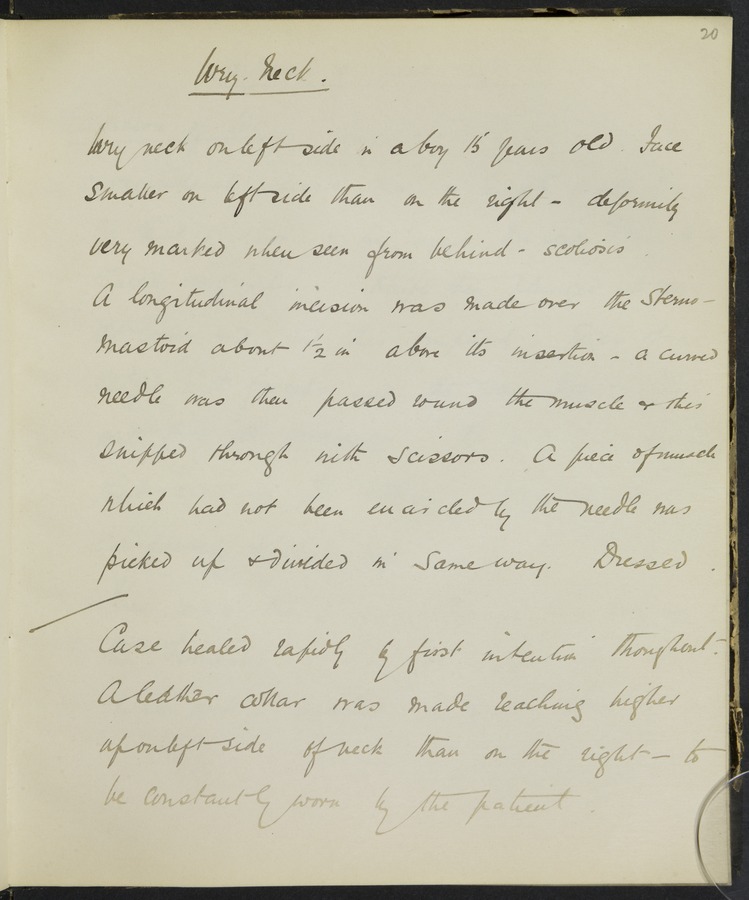 20
Wry-Neck.
Wry neck on left side in a boy 15 years old. Face
smaller on left side than on the right - deformity
very marked when seen from behind - scoliosis.
A longitudinal incision was made over the Sterno-
mastoid about 1 1/2 in above its insertion - a curved
needle was then passed round the muscle & this
snipped through with scissors. A piece of muscle
which had not been encircled by the needle was
picked up & divided in same way. Dressed.
Case healed rapidly by first intention throughout.
A leather collar was made reaching higher
up on left side of neck than on the right - to
be constantly worn by the patient.